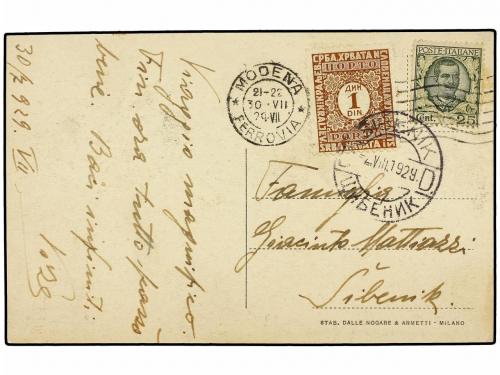 30/7 929 VII
Viaggio magnifico.
Fin ora tutto pare
bene. Baci infiniti.
MODENA
21-22
30·VII
29·VII
FERROVIA
СРБА, ХРВАТА И
ПОРТО
ДИН
1
DIN
PORTO
SRBA HRVATA I
POSTE ITALIANE
Cent. 25
VIII.1929.
D
ШИБЕНИК
Famiglia
Giacinto Mattiazzi
Šibenik.
STAB. DALLE NOGARE & ARMETTI - MILANO